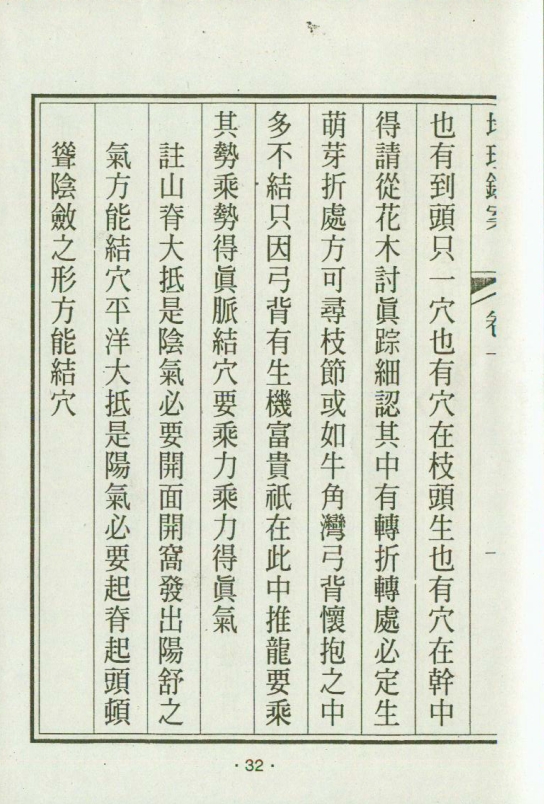 卷一
也有到頭只一穴也有穴在枝頭生也有穴在幹中
得請從花木討眞踪細認其中有轉折轉處必定生
萌芽折處方可尋枝節或如牛角灣弓背懷抱之中
多不結只因弓背有生機富貴祇在此中推龍要乘
其勢乘勢得眞脈結穴要乘力乘力得眞氣
註山脊大抵是陰氣必要開面開窩發出陽舒之
氣方能結穴平洋大抵是陽氣必要起脊起頭頓
聳陰斂之形方能結穴
·32·